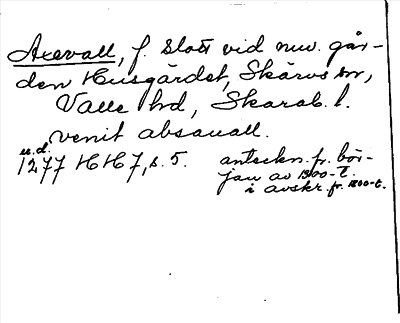 Axevall, f. slott vid nuv. går-
den Husgärdet, Skärvs sn,
Valle hd, Skarab. l.
venit absauall.
u.d.
1277 HH 7, s. 5. anteckn. fr. bör-
jan av 1300-t.
i avskr. fr. 1800-t.